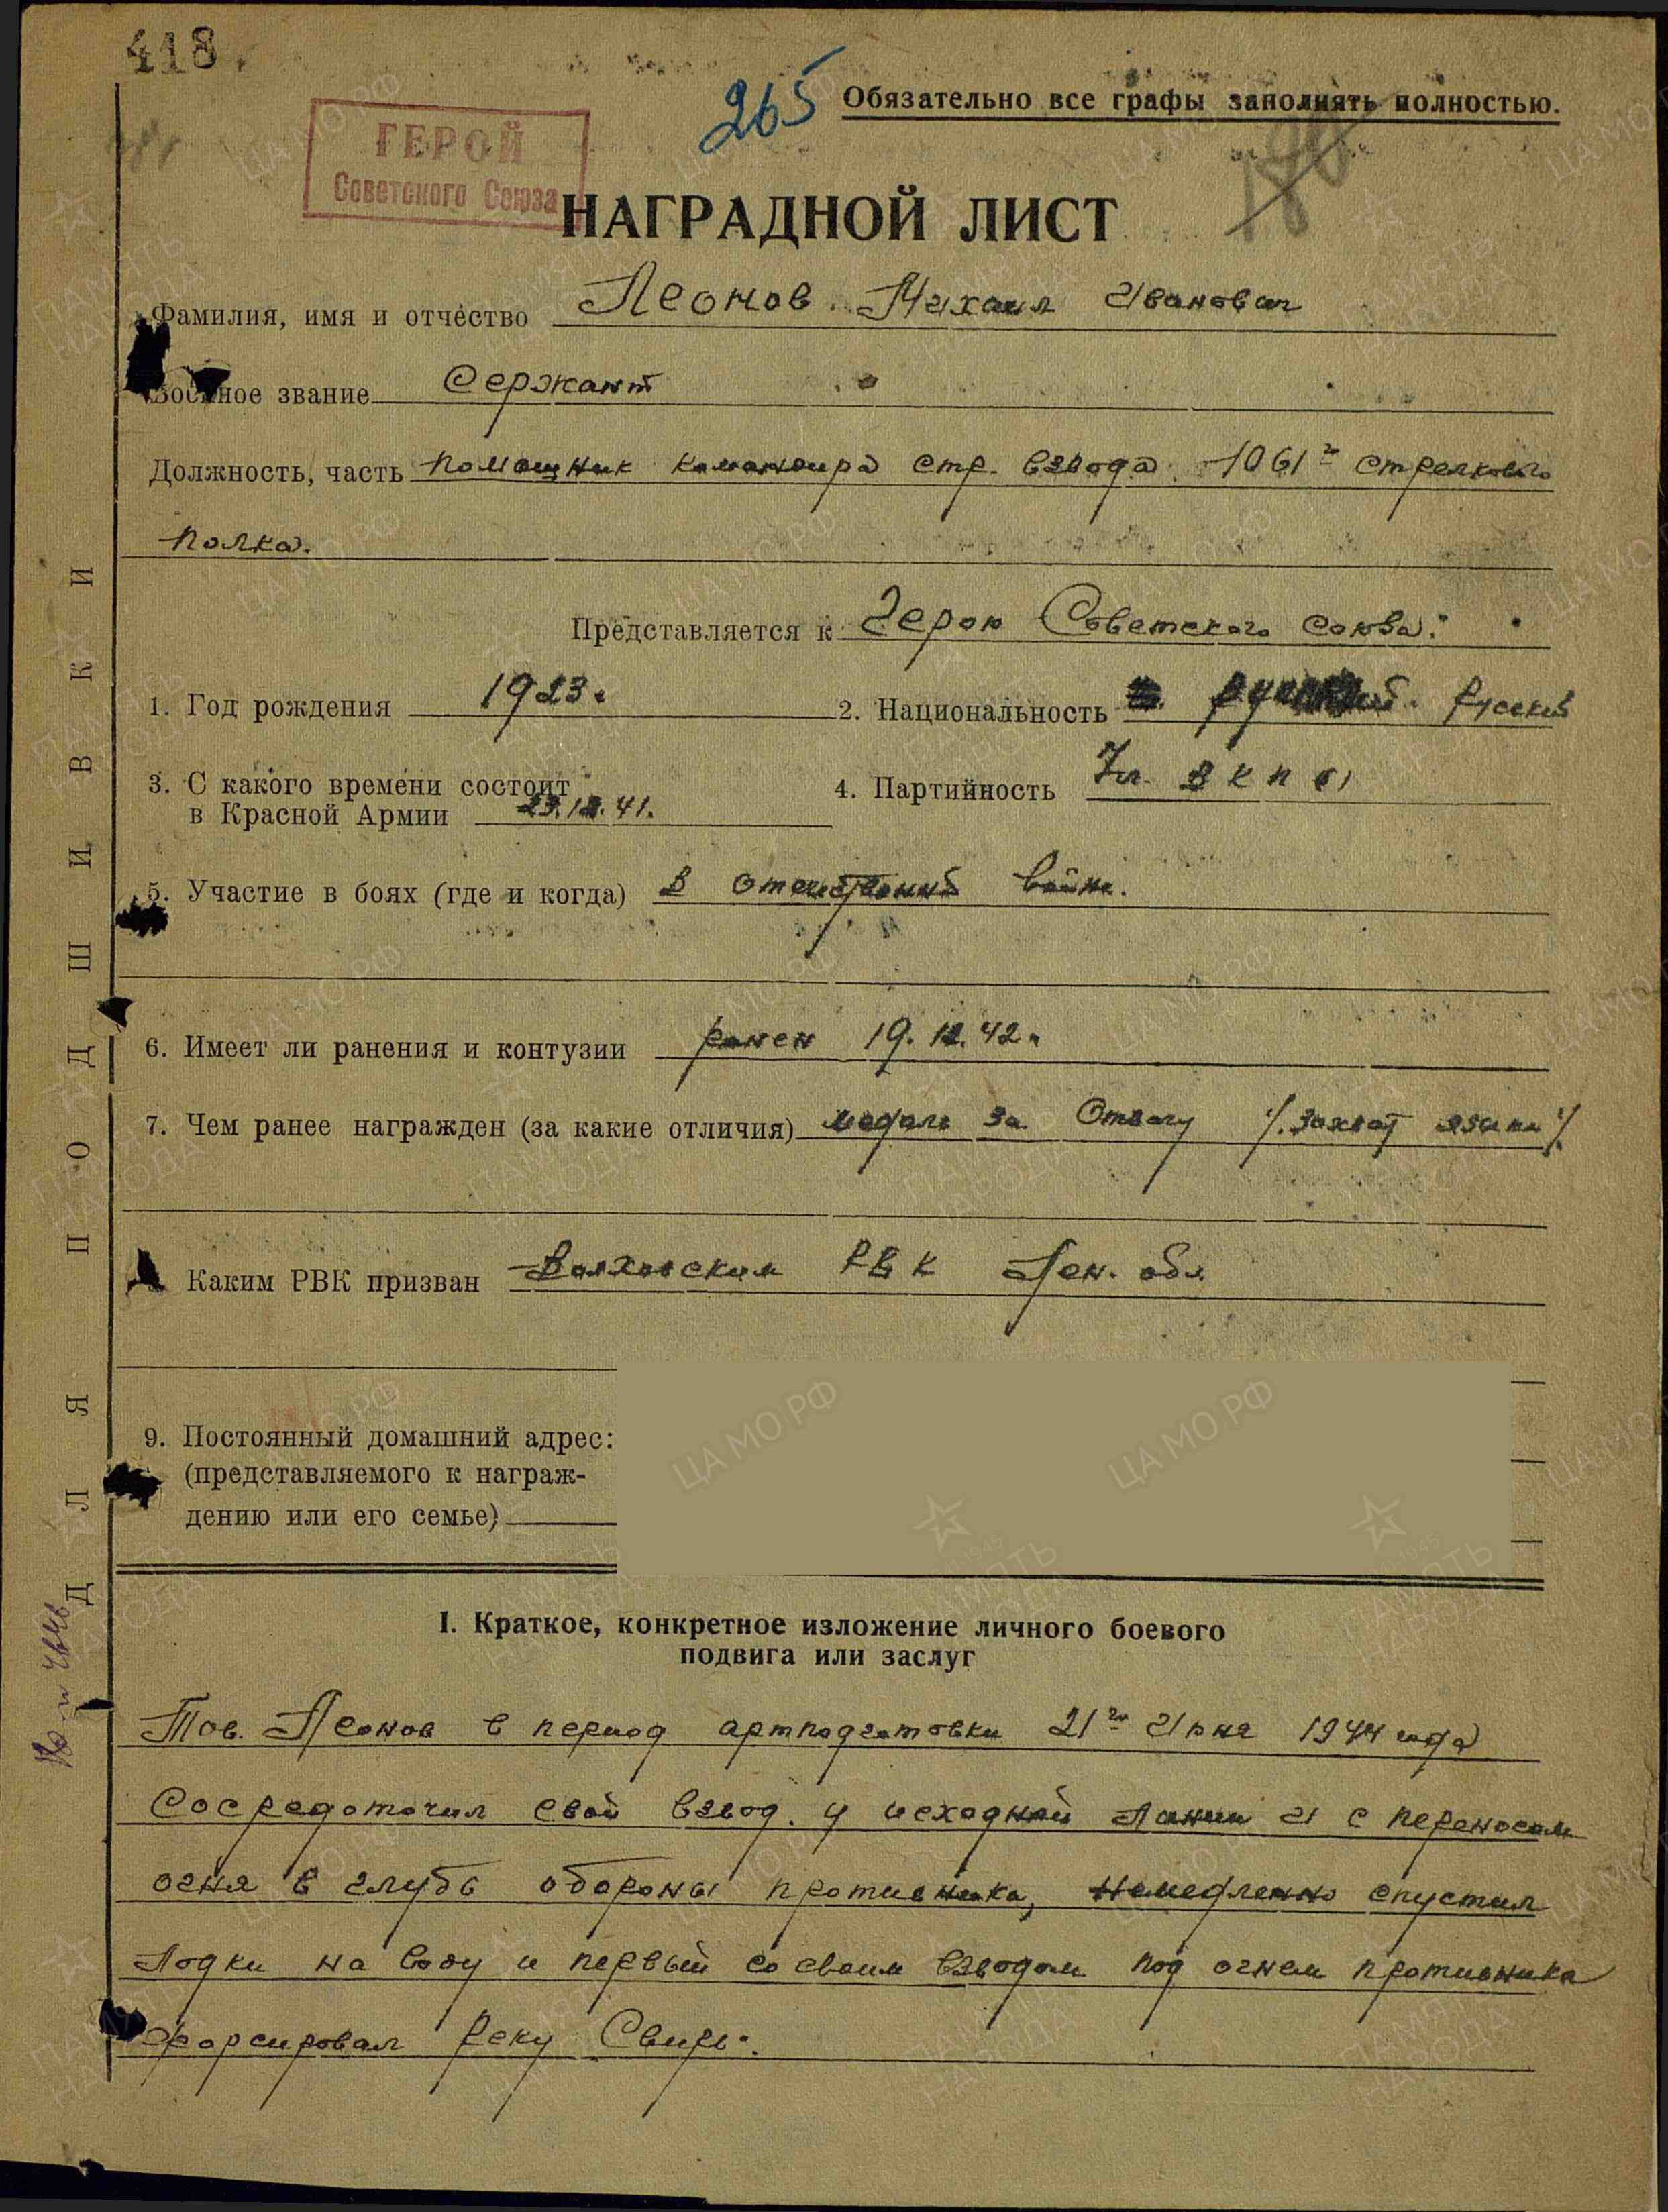 418.
265
Обязательно все графы заполнять полностью.
ГЕРОЙ
Советского Союза
НАГРАДНОЙ ЛИСТ
Фамилия, имя и отчество Леонов Михаил Иванович
Военное звание Сержант
Должность, часть помощник командира стр. взвода 1061го стрелкового
полка.
Представляется к Герою Советского Союза.
1. Год рождения 1923г.
2. Национальность русский
3. С какого времени состоит
в Красной Армии 23.12.41.
4. Партийность Чл. ВКП(б)
5. Участие в боях (где и когда) В отечественной войне.
6. Имеет ли ранения и контузии ранен 19.12.42г.
7. Чем ранее награжден (за какие отличия) медаль за Отвагу /захват языка/
Каким РВК призван Волховским РВК Лен. обл
9. Постоянный домашний адрес:
(представляемого к награж-
дению или его семье)
I. Краткое, конкретное изложение личного боевого
подвига или заслуг
Тов. Леонов в период артподготовки 21го Июня 1944 года
Сосредоточил свой взвод у исходной линии и с переносом
огня в глубь обороны противника, немедленно спустил
лодки на воду и первый со своим взводом под огнем противника
форсировал реку Свирь.
ДЛЯ ПОДШИВКИ
ЦА МО РФ
ПАМЯТЬ НАРОДА